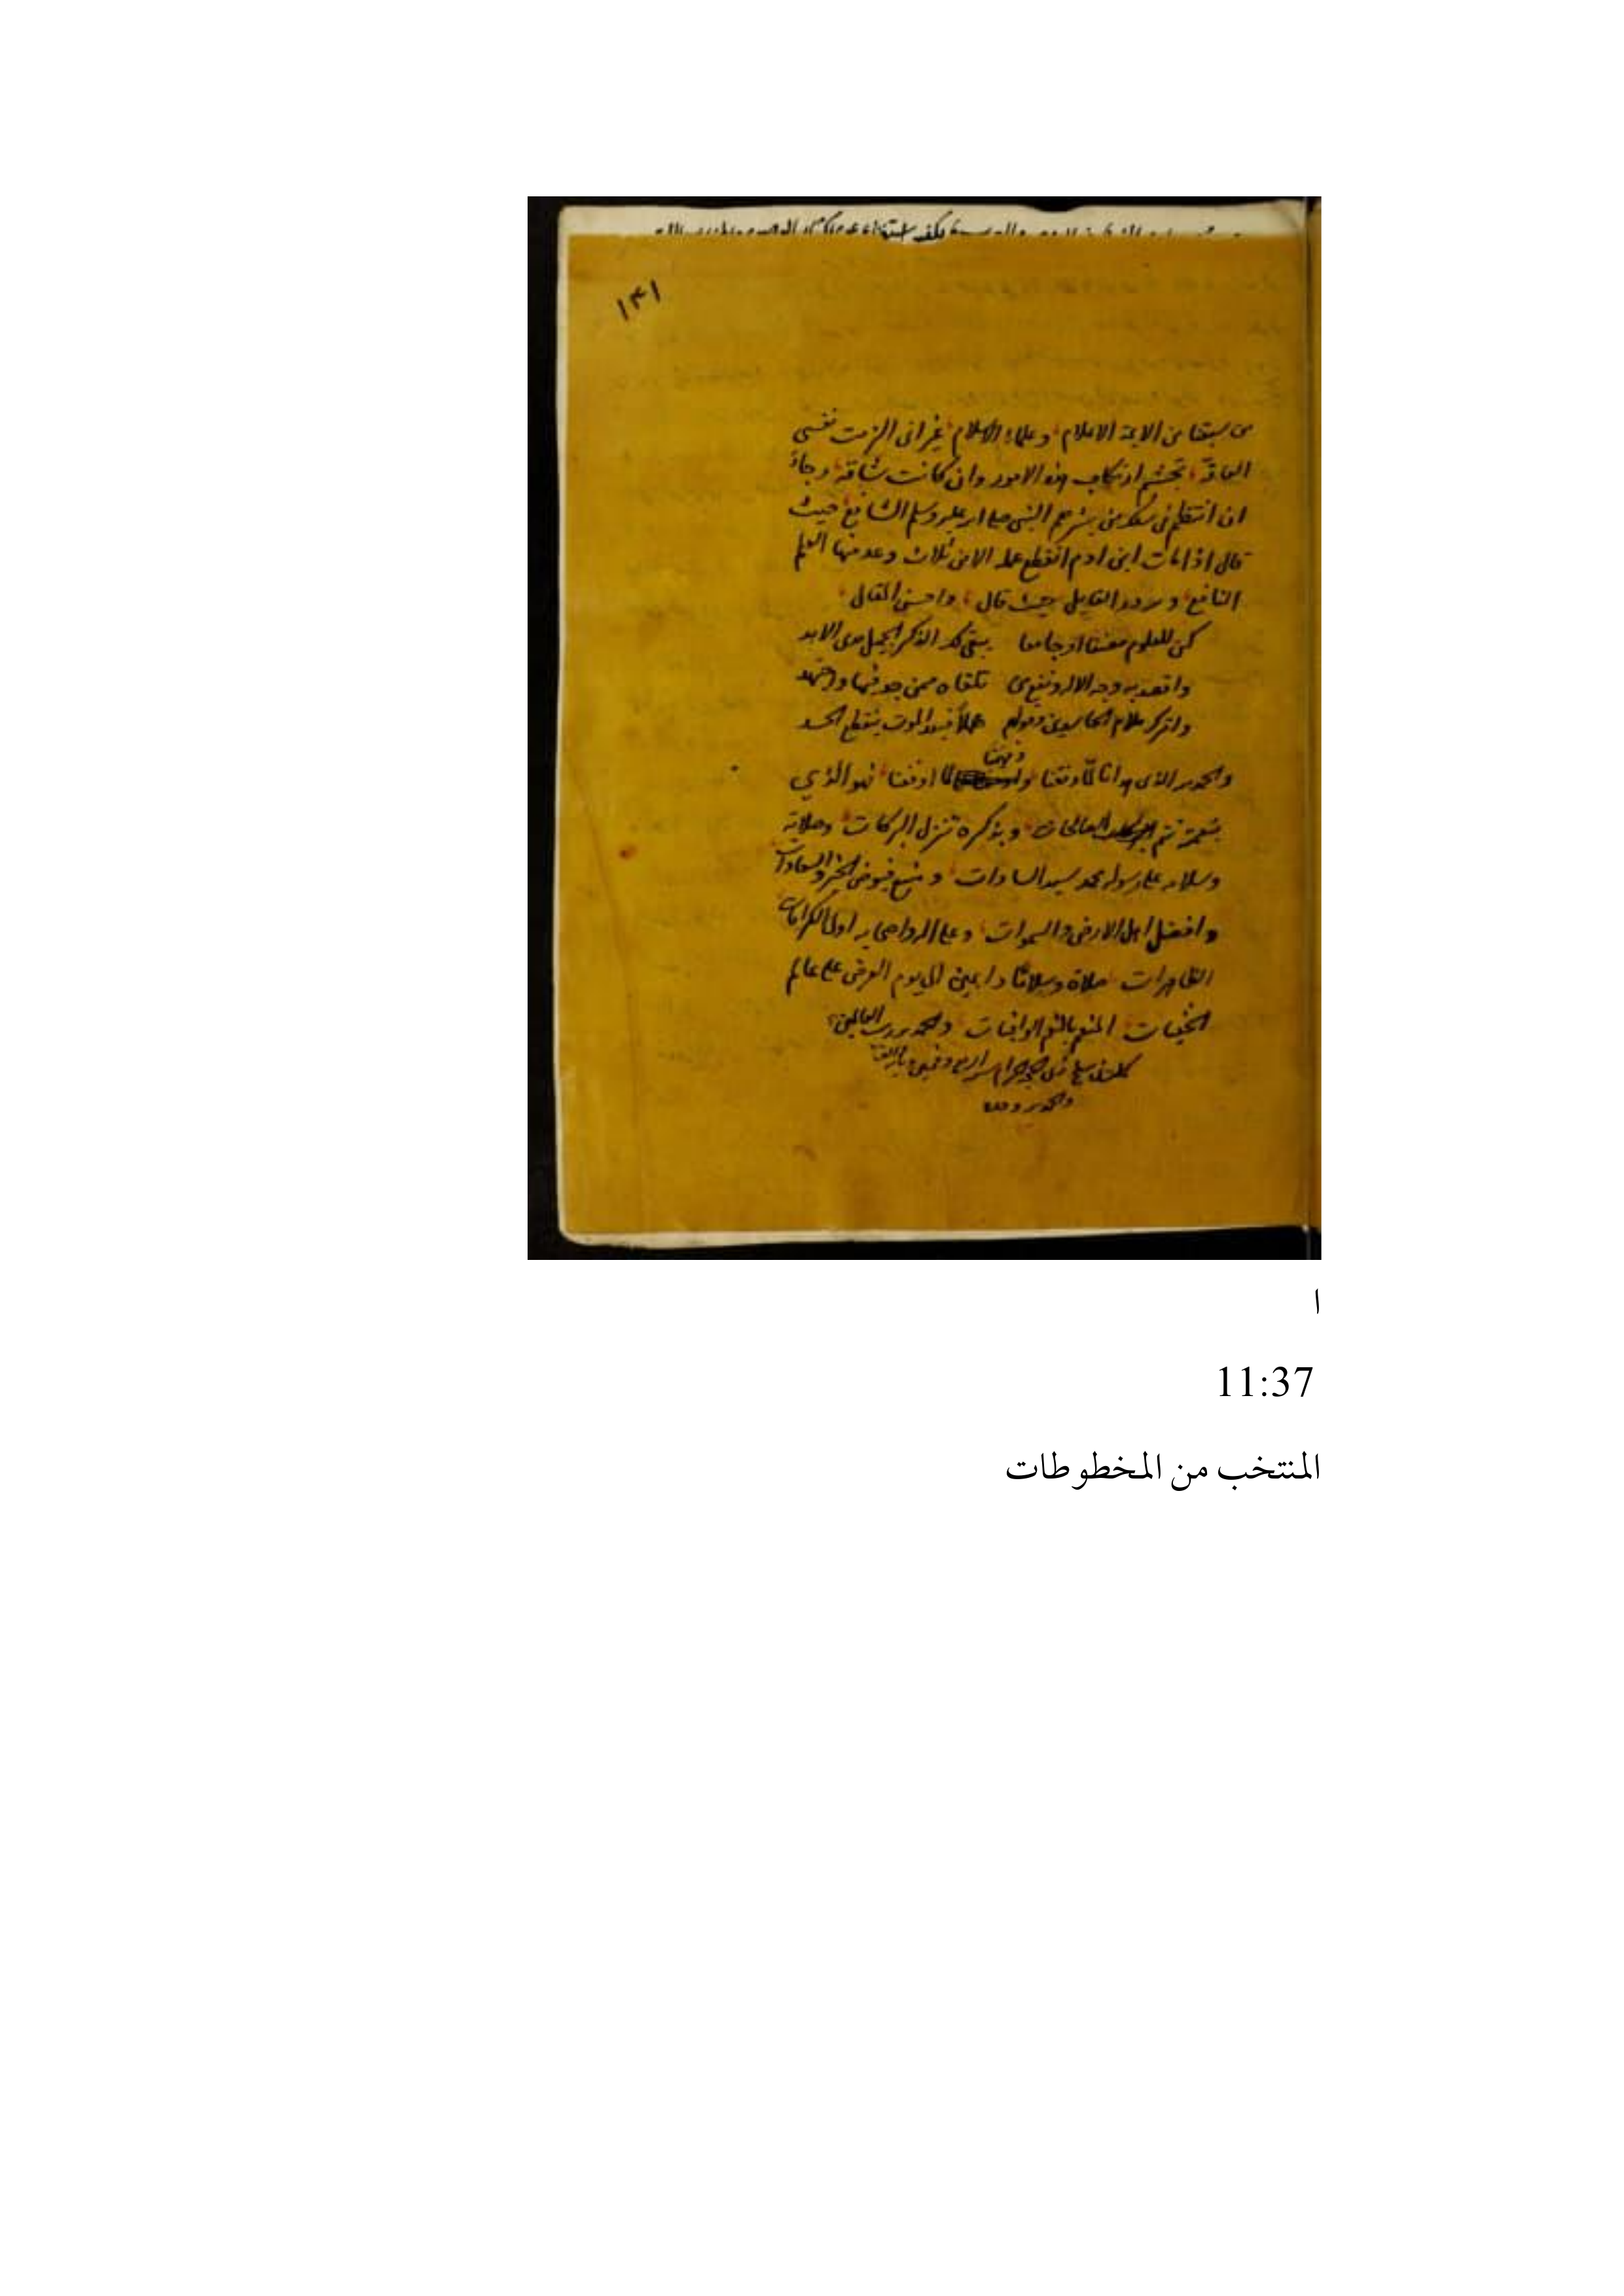 ١٤١
من سبقنا من الائمة الاعلام وعلماء الاسلام غير انى الزمت نفسى
تجشم ارتكاب هذه الامور وان كانت شاقة
ان انتظم فى سلك من بشرهم النبى صلى الله عليه وسلم الشافع حيث
قال اذا مات ابن ادم انقطع عمله الا من ثلاث وعد منها العلم
النافع و لله در القايل حيث قال واحسن المقال
كن للعلوم مصنفا او جامعا يبقى لك الذكر الجميل مدى الابد
واقصد به وجه الاله ونفع من تلقاه ممن جد فيها واجتهد
واترك كلام الحاسدين وقولهم هملاً فبعد الموت ينقطع الحسد
والحمد لله الذى هدانا لما وفقنا و
فهمنا
لما اوقفنا فهو الذي
بنعمته تتم الصالحات وبذكره تنزل البركات وصلاته
وسلامه على رسوله محمد سيد السادات و منبع فيوض الخير والسعادات
وافضل اهل الارض والسموات وعلى اله واصحابه اولى الكرامات
الظاهرات صلاة وسلامًا دايمين الى يوم العرض على عالم
الخفيات المنعم بالنعم الوافيات والحمد لله رب العالمين
والحمد لله وحده
ا
11:37
المنتخب من المخطوطات